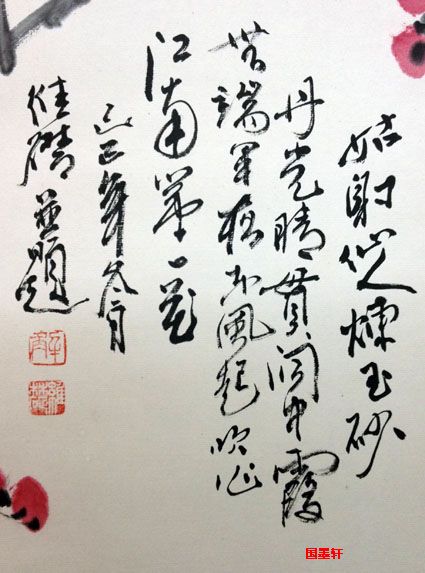 姑射仙人煉玉砂
丹光晴貫洞中霞
無端半夜东風起吹作
江南第一花
己巳年冬月
並題
国墨轩